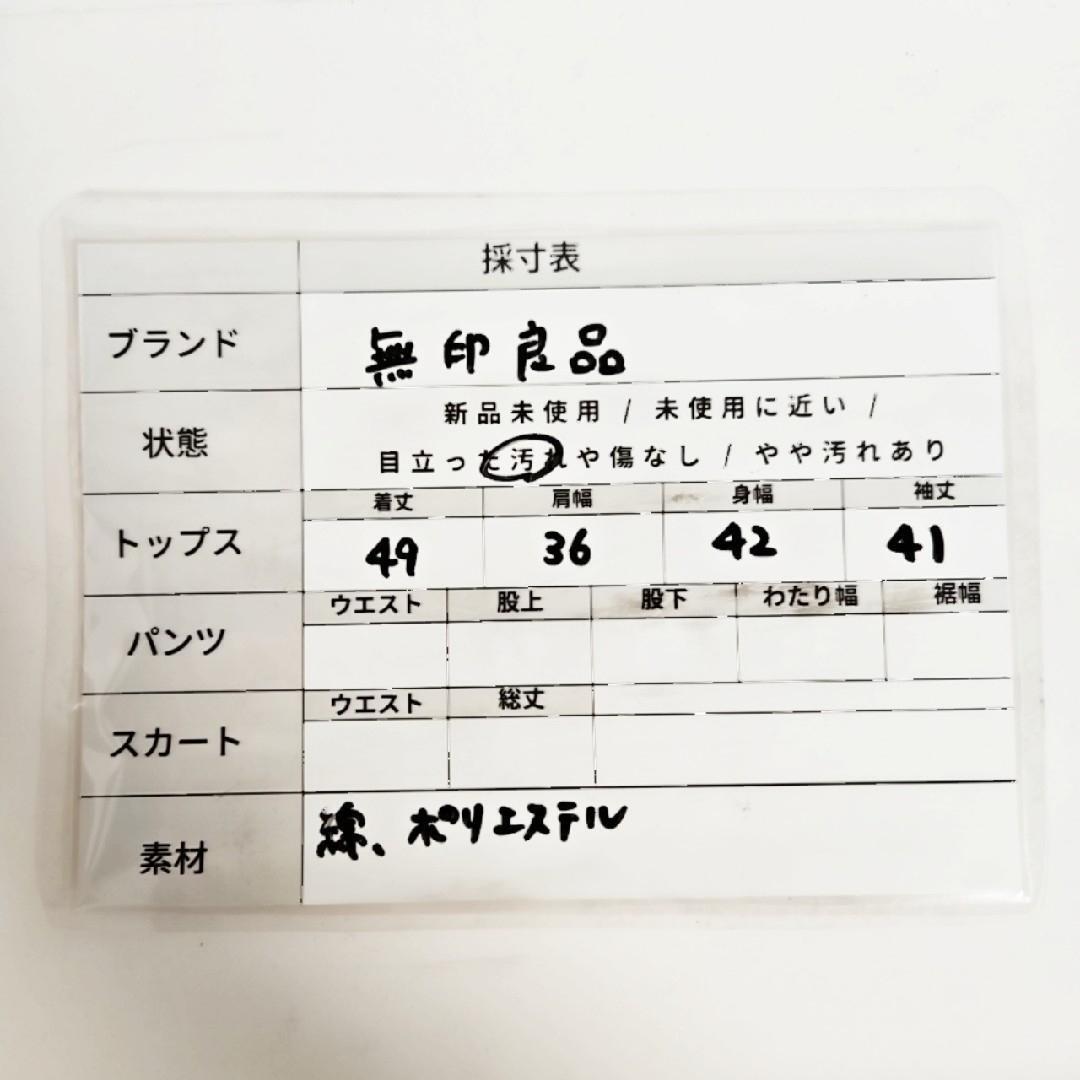 採寸表
ブランド 無印良品
状態 新品未使用 / 未使用に近い /
目立った汚れや傷なし / やや汚れあり
着丈 肩幅 身幅 袖丈
トップス 49 36 42 41
ウエスト 股上 股下 わたり幅 裾幅
パンツ
ウエスト 総丈
スカート
素材 綿、ポリエステル